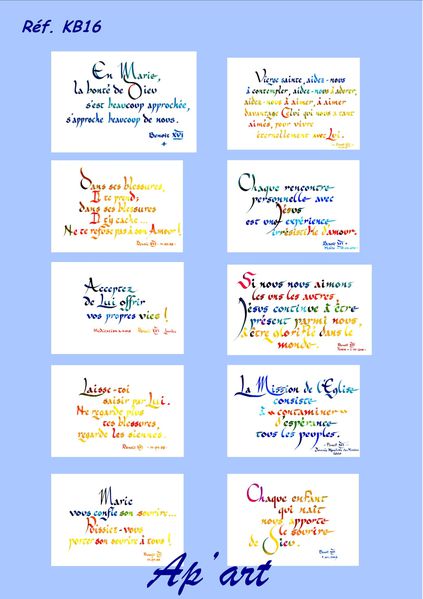 Réf. KB16
En Marie,
la bonté de Dieu
s'est beaucoup approchée,
s'approche beaucoup de nous.
Benoit XVI
Vierge sainte, aidez-nous
à contempler, aidez-nous à adorer,
aidez-nous à aimer, à aimer
davantage Celui qui nous a tant
aimés, pour vivre
éternellement avec Lui.
Dans ses blessures,
Il te prend;
dans ses blessures
Il t'y cache...
Ne te refuse pas à son Amour !
Benoit XVI
Chaque rencontre
personnelle avec
Jésus
est une expérience
irrésistible d'amour.
Benoit XVI
Acceptez
de Lui offrir
vos propres vies !
Benoit XVI
Si nous nous aimons
les uns les autres
Jésus continue à être
présent parmi nous,
à être glorifié dans le
monde.
Laisse-toi
saisir par Lui.
Ne regarde plus
tes blessures,
regarde les siennes.
Benoit XVI
La Mission de l'Eglise
consiste
à « contaminer »
d'espérance
tous les peuples.
Benoit XVI
Marie
vous confie son sourire...
Puissiez-vous
porter son sourire à tous !
Chaque enfant
qui naît
nous apporte
le sourire
de Dieu.
Benoit XVI
Ap'art